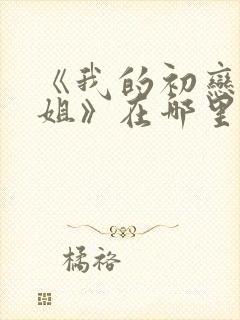 《我的初戀
姐》在哪里
橘袼